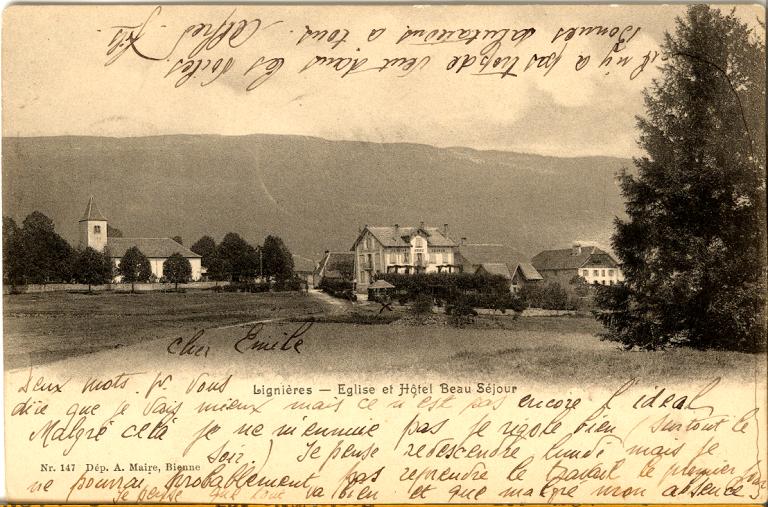 cher Emile
Lignières — Eglise et Hôtel Beau Séjour
Deux mots pr. vous
dire que je vais mieux mais ce n'est pas encore l'ideal
Malgré celà je ne m'ennuie pas je rigole bien (surtout le
soir.) Je pense redescendre lundi mais je
Nr. 147 Dép. A. Maire, Bienne
ne pourrai probablement pas reprendre le travail le premier jour
Je pense que tout va bien et que malgré mon absence
il n'y a pas trop de vent dans les voiles
Bonnes salutations a tous. Alfred